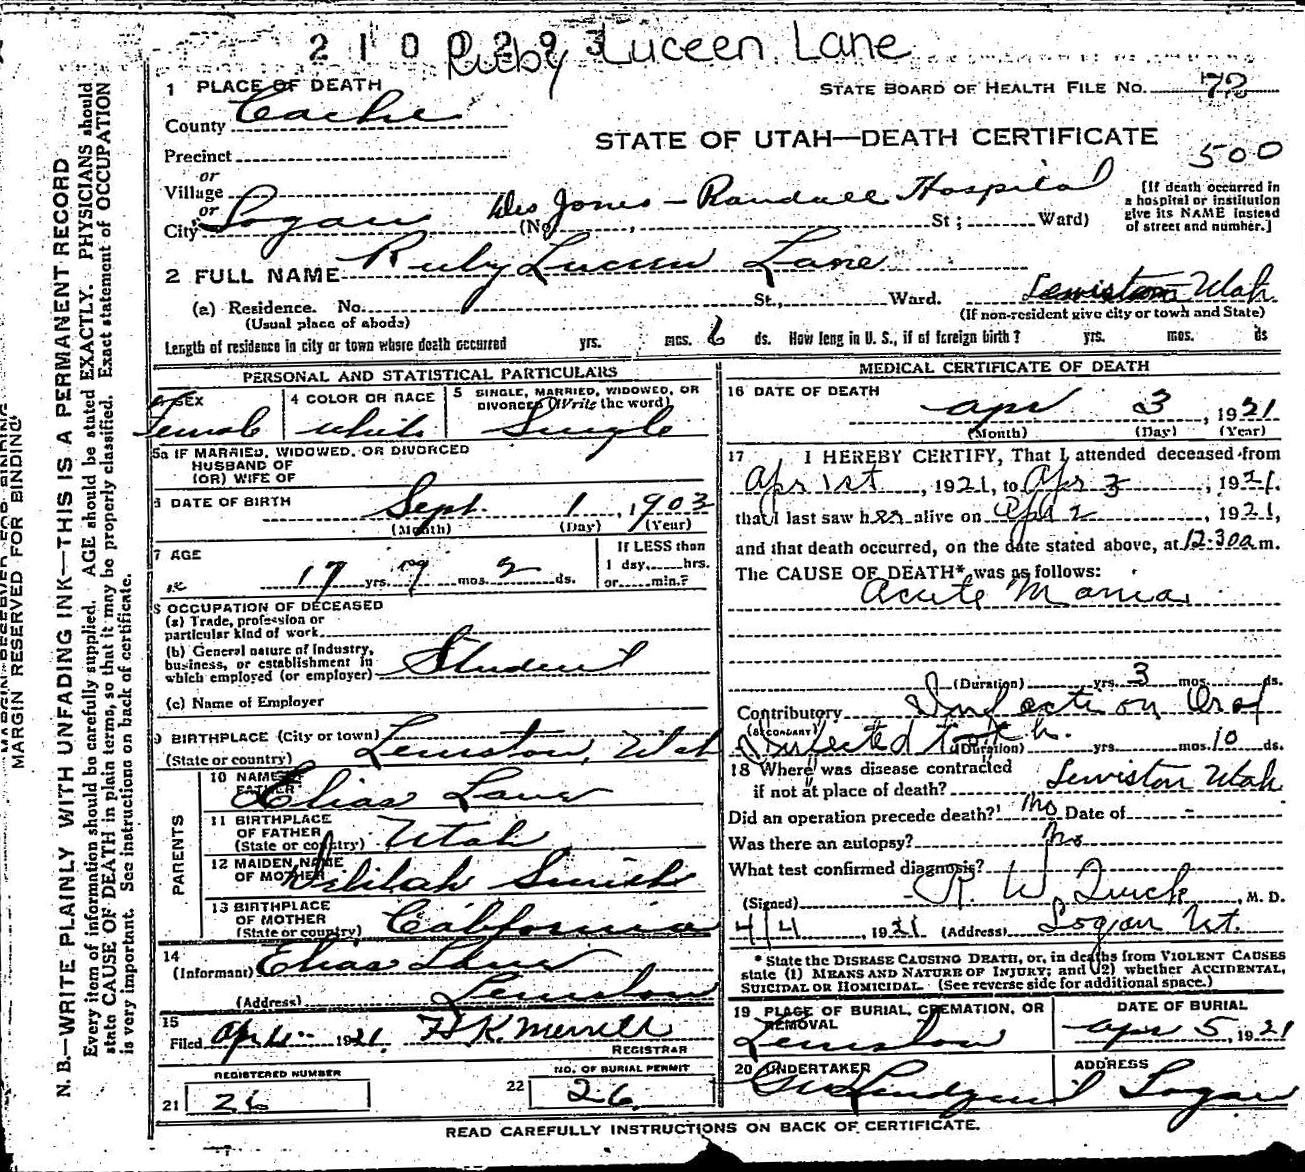 2100293
Ruby Luceen Lane
1 PLACE OF DEATH
STATE BOARD OF HEALTH FILE NO. 72
County Cache
STATE OF UTAH—DEATH CERTIFICATE
500
Precinct
or
Village
or
City Logan
(No. Jones - Randall Hospital St; Ward)
[If death occurred in
a hospital or institution
give its NAME instead
of street and number.]
2 FULL NAME Ruby Luceen Lane
(a) Residence. No. St., Ward. Lewiston Utah
(Usual place of abode)
(If non-resident give city or town and State)
Length of residence in city or town where death occurred yrs. mos. 6 ds. How long in U. S., if of foreign birth? yrs. mos. ds
PERSONAL AND STATISTICAL PARTICULARS
SEX
Female
4 COLOR OR RACE
White
5 SINGLE, MARRIED, WIDOWED, OR
DIVORCED (Write the word)
Single
5a IF MARRIED, WIDOWED, OR DIVORCED
HUSBAND OF
(OR) WIFE OF
6 DATE OF BIRTH
Sept. 1, 1903
(Month) (Day) (Year)
7 AGE
17 yrs. 7 mos. 2 ds.
If LESS than
1 day, hrs.
or min.?
8 OCCUPATION OF DECEASED
(a) Trade, profession or
particular kind of work
(b) General nature of Industry,
business, or establishment in
which employed (or employer) Student
(c) Name of Employer
9 BIRTHPLACE (City or town) Lewiston, Utah
(State or country)
PARENTS
10 NAME OF
FATHER Elias Lane
11 BIRTHPLACE
OF FATHER
(State or country) Utah
12 MAIDEN NAME
OF MOTHER Delilah Smith
13 BIRTHPLACE
OF MOTHER
(State or country) California
14
(Informant) Elias Lane
(Address) Lewiston
15
Filed Apr 4 1921. H K Merrill
REGISTRAR
REGISTERED NUMBER
21 26
NO. OF BURIAL PERMIT
22 26
MEDICAL CERTIFICATE OF DEATH
16 DATE OF DEATH
Apr 3, 1921
(Month) (Day) (Year)
17 I HEREBY CERTIFY, That I attended deceased from
Apr 1st, 1921, to Apr 3, 1921.
that I last saw her alive on Apr 2, 1921,
and that death occurred, on the date stated above, at 12.30 a m.
The CAUSE OF DEATH* was as follows:
Acute Mania
(Duration) yrs. 3 mos. ds.
Contributory Infection
(SECONDARY)
Infected tooth. (Duration) yrs. mos. 10 ds.
18 Where was disease contracted
if not at place of death? Lewiston Utah
Did an operation precede death? No Date of -
Was there an autopsy? No
What test confirmed diagnosis?
(Signed) R. W. Quick, M. D.
4/4, 1921 (Address) Logan Ut.
* State the DISEASE CAUSING DEATH, or, in deaths from VIOLENT CAUSES
state (1) MEANS AND NATURE OF INJURY; and (2) whether ACCIDENTAL,
SUICIDAL OR HOMICIDAL. (See reverse side for additional space.)
19 PLACE OF BURIAL, CREMATION, OR
REMOVAL
Lewiston
DATE OF BURIAL
Apr 5, 1921
20 UNDERTAKER
Lindquist
ADDRESS
Logan
READ CAREFULLY INSTRUCTIONS ON BACK OF CERTIFICATE.
MARGIN RESERVED FOR BINDING
MARGIN RESERVED FOR BINDING
N. B.—WRITE PLAINLY WITH UNFADING INK—THIS IS A PERMANENT RECORD
Every item of information should be carefully supplied. AGE should be stated EXACTLY. PHYSICIANS should
state CAUSE OF DEATH in plain terms, so that it may be properly classified. Exact statement of OCCUPATION
is very important. See instructions on back of certificate.